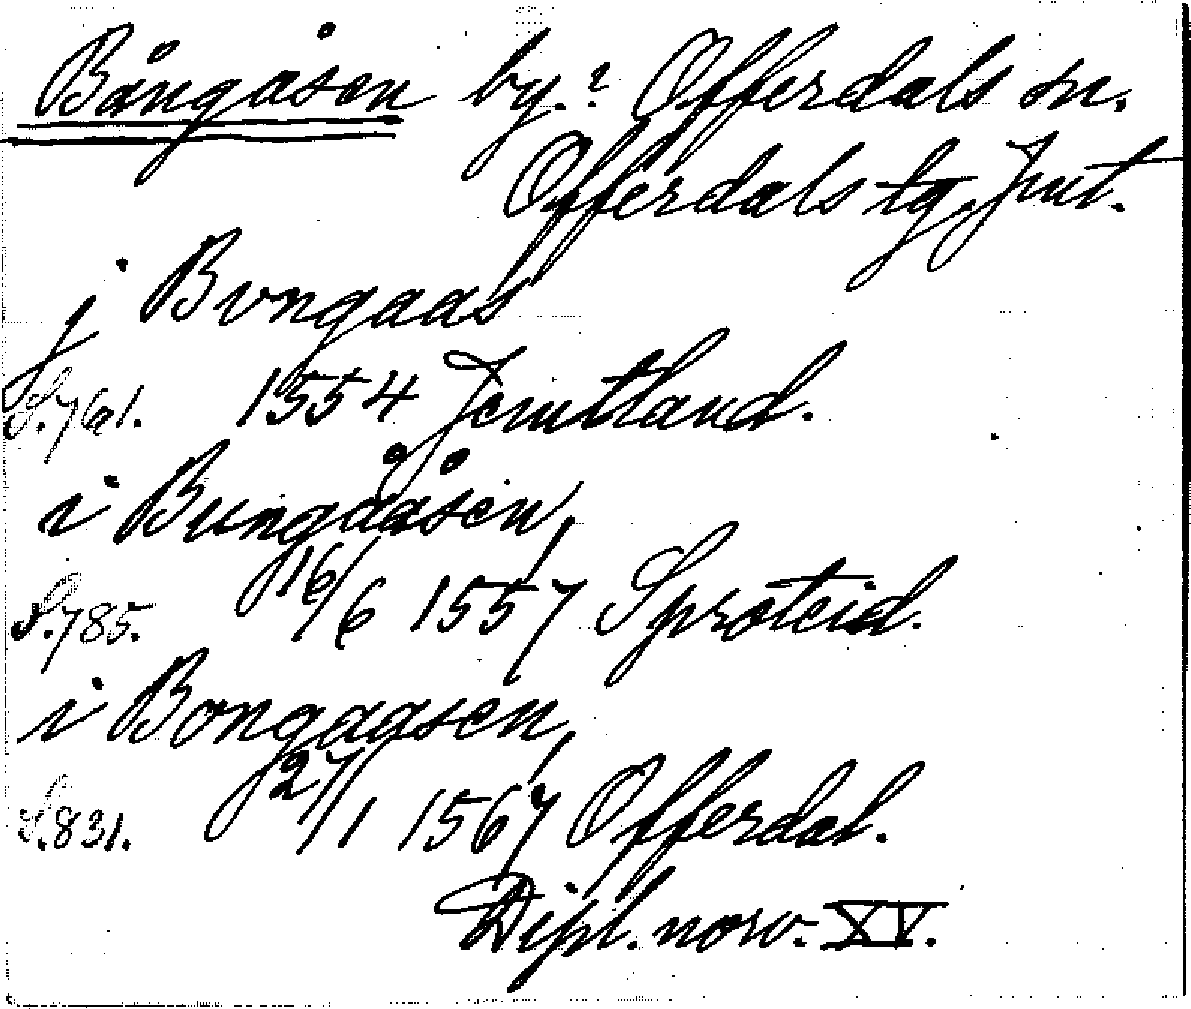 Bångåsen by.: Offerdals sn.
Offerdals tg, Jmt.
j Bvngaas
S.761. 1554 Jemtland.
i Bungaåsen,
S.785. 16/6 1557 Sproteid.
i Bongaasen,
S.831. 27/1 1567 Offerdal.
Dipl. norv. XV.